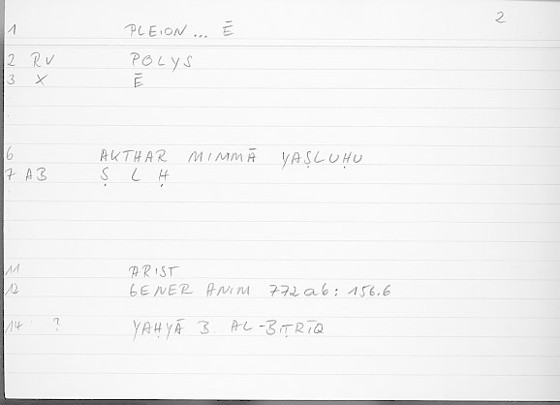 2
1 PLEION... Ē
2 RV POLYS
3 X Ē
6 AKTHAR MIMMĀ YAṢLUḤU
7 AB Ṣ L Ḥ
11 ARIST
12 GENER ANIM 772a6: 156.6
14 ? YAḤYĀ B. AL-BIṬRĪQ